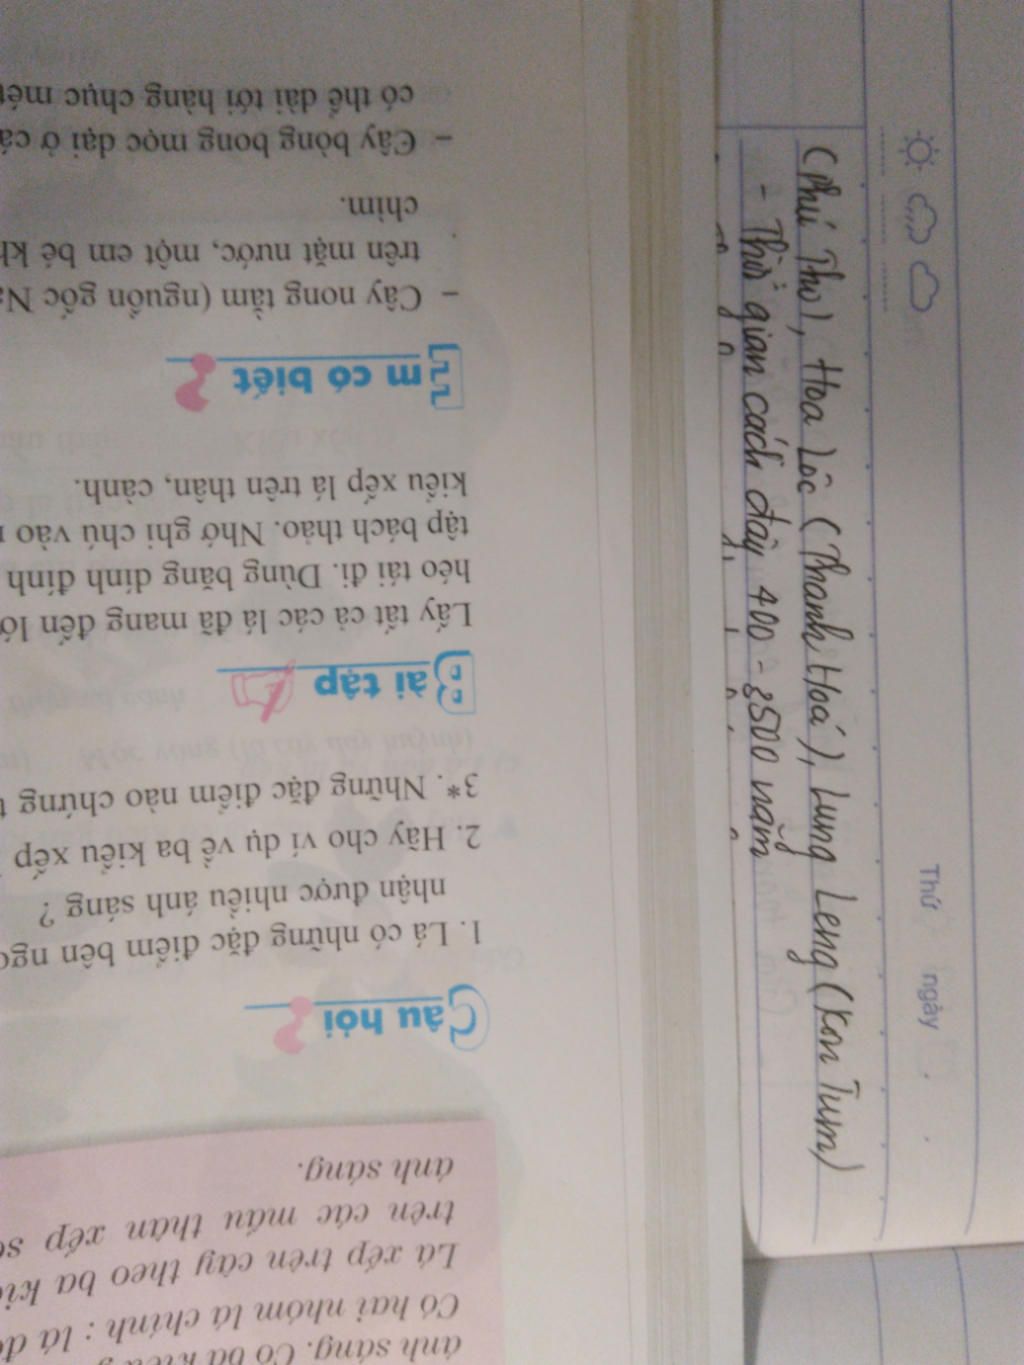 ánh sáng. Có ba kiểu
Có hai nhóm lá chính : lá đơ
Lá xếp trên cây theo ba kiể
trên các mấu thân xếp so
ánh sáng.
Câu hỏi ?
1. Lá có những đặc điểm bên ngo
nhận được nhiều ánh sáng ?
2. Hãy cho ví dụ về ba kiểu xếp
3*. Những đặc điểm nào chứng t
Bài tập
Lấy tất cả các lá đã mang đến lớ
héo tái đi. Dùng băng dính đính
tập bách thảo. Nhớ ghi chú vào
kiểu xếp lá trên thân, cành.
Em có biết ?
- Cây nong tằm (nguồn gốc Na
trên mặt nước, một em bé kh
chìm.
- Cây bòng bong mọc dại ở cá
có thể dài tới hàng chục mét
Thứ ngày
(Phú Thọ), Hoa Lộc (Thanh Hoá), Lung Leng (Kon Tum)
- Thời gian cách đây 400 - 3500 năm